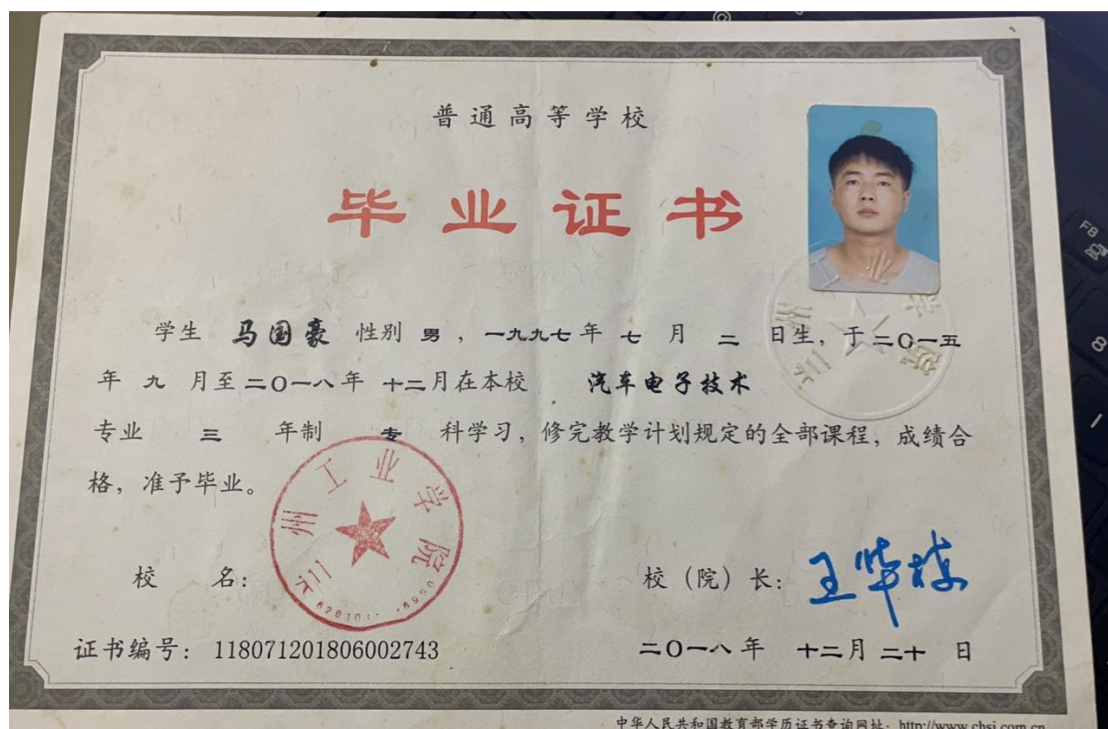 普通高等学校
毕业证书
学生 马国豪 性别 男 ，一九九七 年 七 月 二 日生，于 二〇一五
年 九 月至 二〇一八 年 十二 月在本校 汽车电子技术
专业 三 年制 专 科学习，修完教学计划规定的全部课程，成绩合
格，准予毕业。
兰州工业学院
校 名：
校（院）长：王华栋
证书编号：118071201806002743
二〇一八 年 十二 月 二十 日
中华人民共和国教育部学历证书查询网址：http://www.chsi.com.cn
F8
8